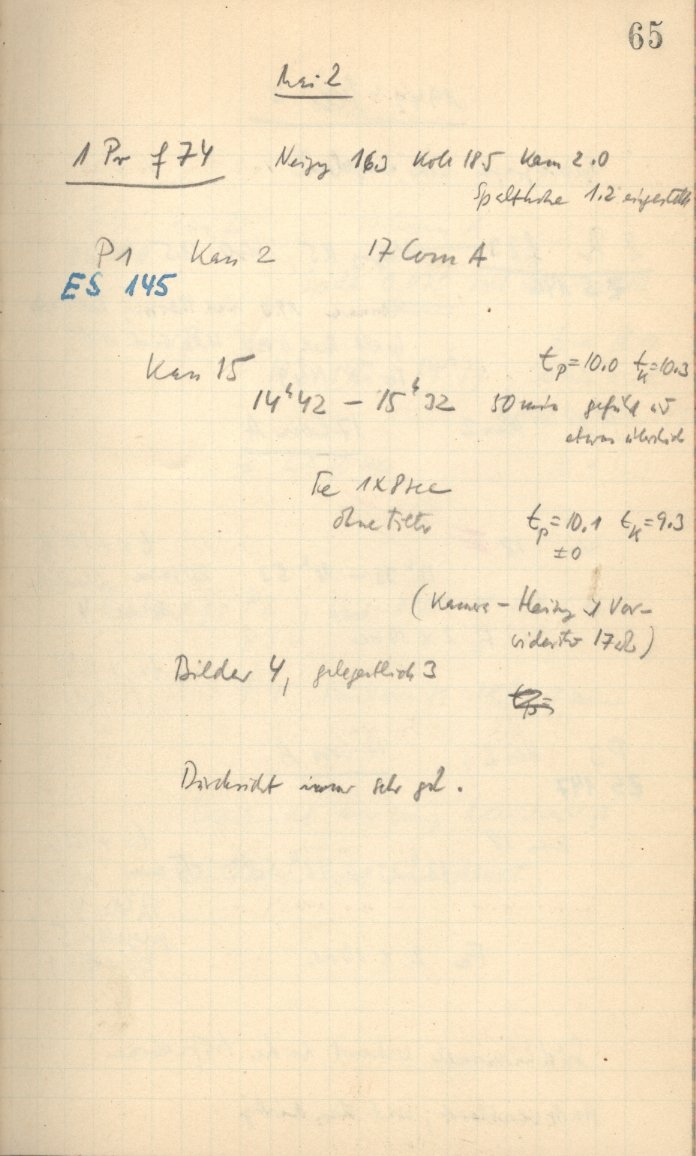 65
Mai 2
1 Pr f 74 Neigg 163 Koll 185 Kam 2.0
Spalthöhe 1.2 eingestellt
P1 Kas 2 17 Com A
ES 145
Kas 15 tp=10.0 tk=10.3
14h42 – 15h32 50 min
etwas
Fe 1x8sec
ohne Filter tp=10.1 tk=9.3
±0
(Kamera – Heizg
17
Bilder 4, gelegentlich 3
Durchsicht immer sehr gut.